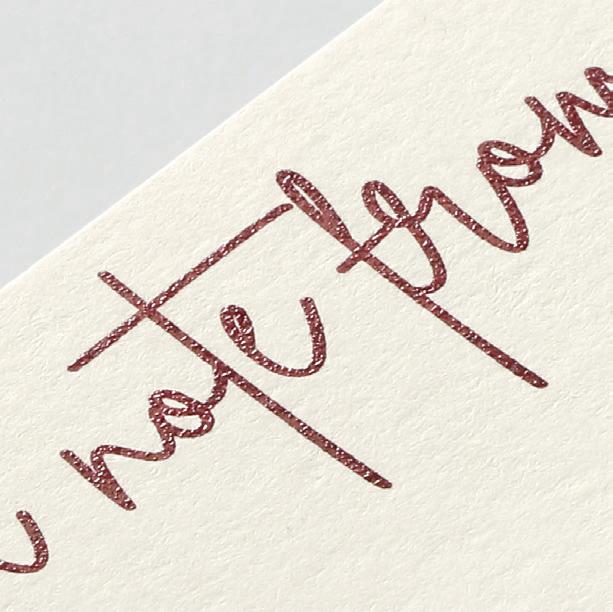 note from